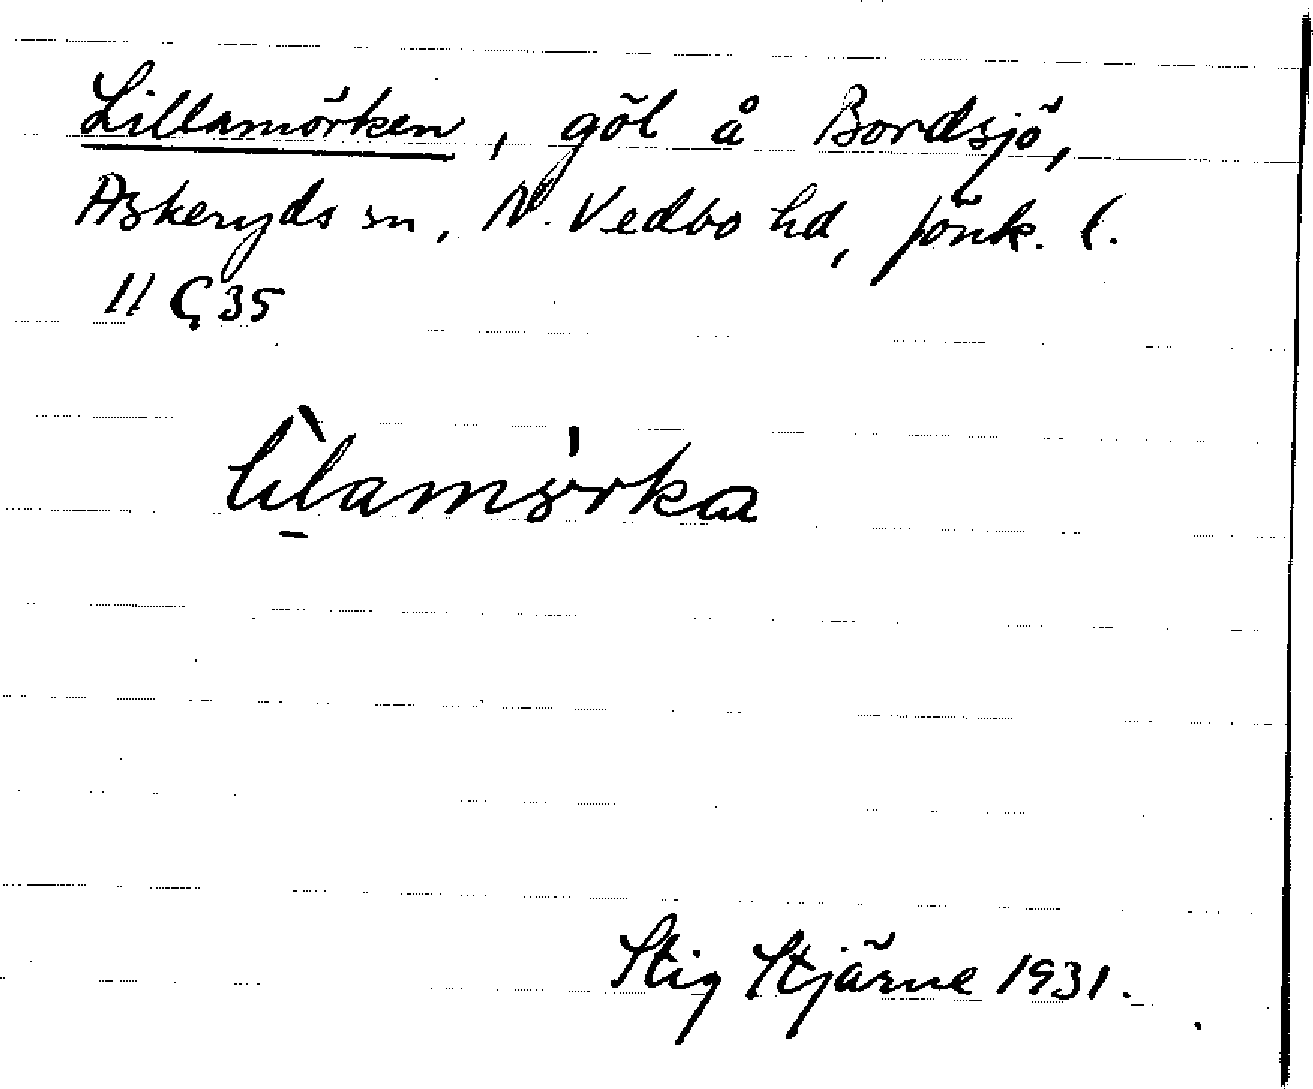 Lillamörken, göl å Bordsjö,
Askeryds sn, N. Vedbo hd, Jönk. l.
11 Ç 35
lìlamö́rka
Stig Stjärne 1931.